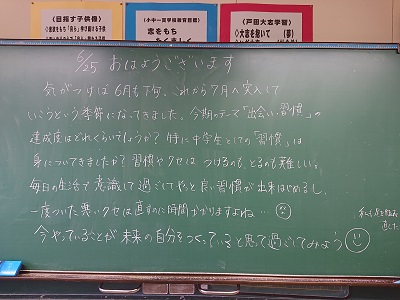 (目指す子供像)
(小中一貫学校教育目標)
志をもち
(戸田大志学習)
◇大志を抱いて (夢)
6/25 おはようございます
気がつけば6月も下旬、これから7月へ突入して
いこうという季節になってきました。今期のテーマ「出会い・習慣」の
達成度はどれくらいでしょうか? 特に中学生としての「習慣」は
身についてきましたか? 習慣やクセは つけるのも、とるのも難しい。
毎日の生活で意識して過ごしてやっと良い習慣が出来はじめるし、
一度ついた悪いクセは直すのに時間がかかりますよね…
今やっていることが未来の自分をつくっていると思って過ごしてみよう